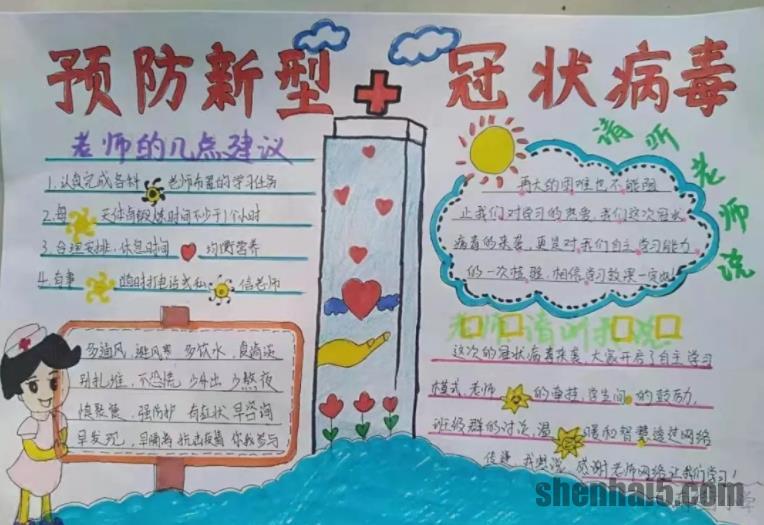 预防新型冠状病毒
老师的几点建议
1.认真完成各科老师布置的学习任务
2.每天体育锻炼时间不少于1个小时
3.合理安排.休息时间均衡营养
4.有事随时打电话或私信老师
多通风,避风寒 多饮水,食清淡
别扎堆,不恐慌 少外出 少熬夜
慎聚餐,强防护 有症状早咨询
早发现,早隔离 抗击疫情 你我参与
请听老师说
再大的困难也不能阻
止我们对学习的热爱,我们这次冠状
病毒的来袭,更是对我们自主学习能力
的一次检验,相信学习效果一定
老师请听我说
这次的冠状病毒来袭,大家开启了自主学习
模式.老师的牵挂,学生间的鼓励,
班级群的讨论,温暖和智慧透过网络
传递 我想说 感谢老师网络让我们学习!
shenhai5.com